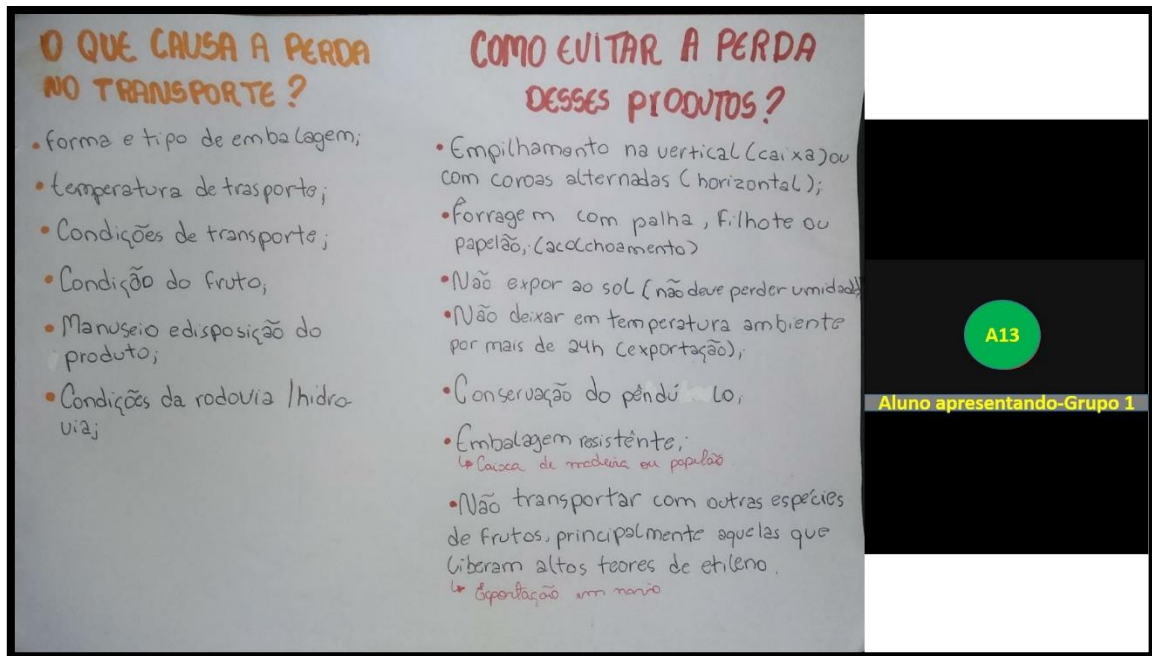 O QUE CAUSA A PERDA
NO TRANSPORTE?
• forma e tipo de embalagem;
• temperatura de trasporte;
• Condições de transporte;
• Condição do fruto;
• Manuseio e disposição do
produto;
• Condições da rodovia / hidro-
via;
COMO EVITAR A PERDA
DESSES PRODUTOS?
• Empilhamento na vertical (caixa) ou
com coroas alternadas (horizontal);
• Forragem com palha, filhote ou
papelão; (acolchoamento)
• Não expor ao sol (não deve perder umidade)
• Não deixar em temperatura ambiente
por mais de 24h (exportação);
• Conservação do pêndulo;
• Embalagem resistênte;
↳ Caixa de madeira ou papelão
• Não transportar com outras espécies
de frutos, principalmente aquelas que
liberam altos teores de etileno.
↳ Exportação em navio
A13
Aluno apresentando-Grupo 1